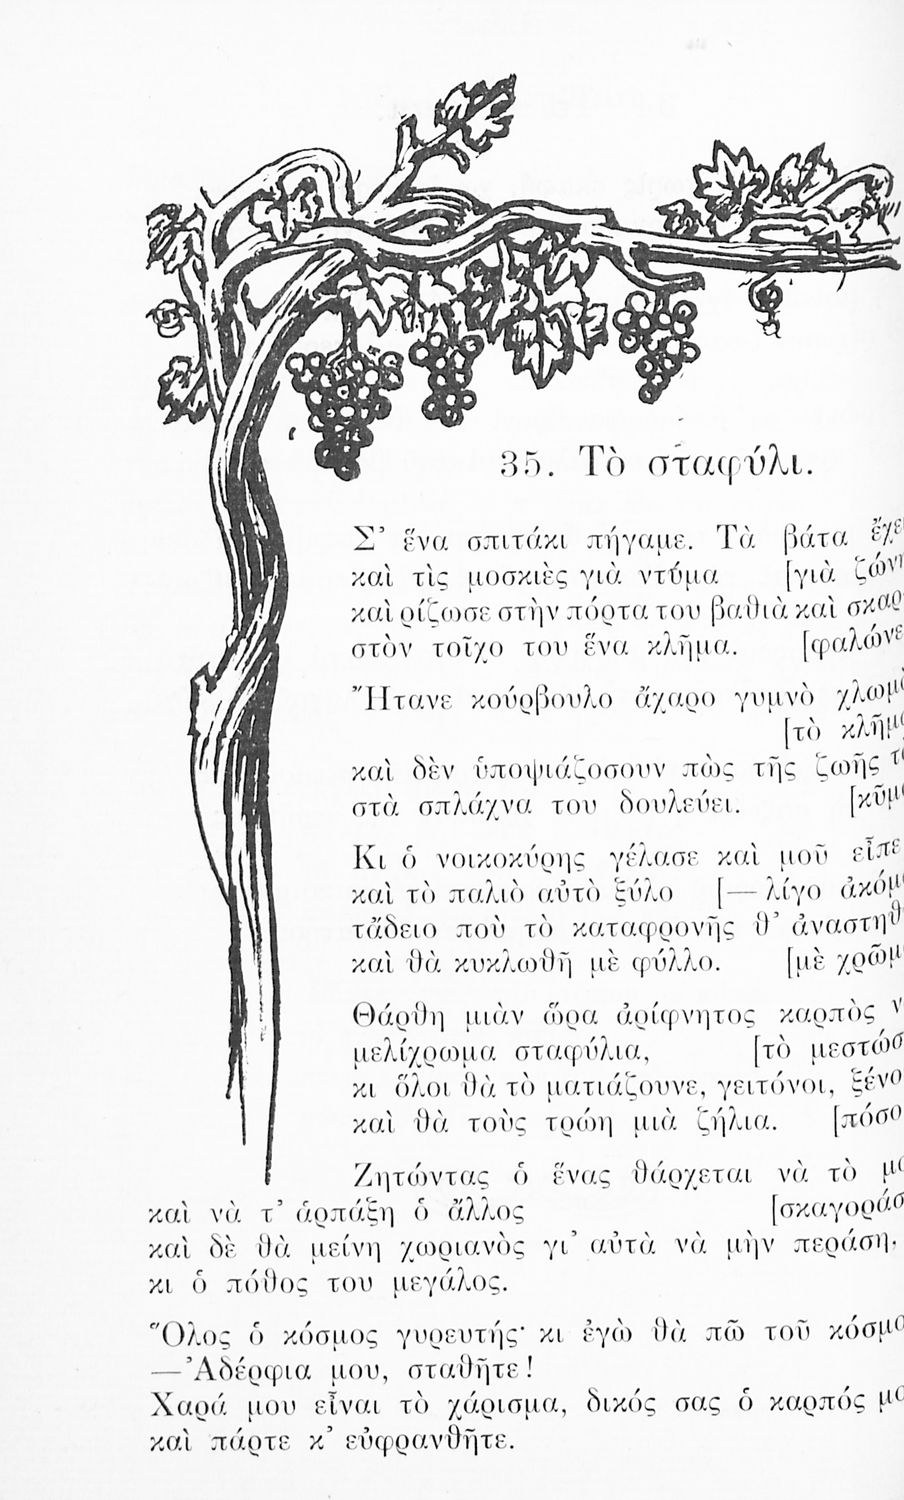 35. Τὸ σταφύλι.
Σ’ ἕνα σπιτάκι πήγαμε. Τὰ βάτα
καὶ τὶς μοσκιὲς γιὰ ντύμα [γιὰ
καὶ ρίζωσε στὴν πόρτα του βαθιὰ καὶ
στὸν τοῖχο του ἕνα κλῆμα.
Ἤτανε κούρβουλο ἄχαρο γυμνὸ
[τὸ
καὶ δὲν ὑποψιάζοσουν πὼς τῆς ζωῆς
στὰ σπλάχνα του δουλεύει.
Κι ὁ νοικοκύρης γέλασε καὶ μοῦ εἶπε
καὶ τὸ παλιὸ αὐτὸ ξύλο [—λίγο
τἄδειο ποὺ τὸ καταφρονῆς θ’
καὶ θὰ κυκλωθῆ μὲ φύλλο. [μὲ
Θάρθη μιὰν ὥρα ἀρίφνητος καρπὸς
μελίχρωμα σταφύλια, [τὸ
κι ὅλοι θὰ τὸ ματιάζουνε, γειτόνοι,
καὶ θὰ τοὺς τρώη μιὰ ζήλια.
Ζητώντας ὁ ἕνας θάρχεται νὰ τὸ
καὶ νὰ τ’ ἁρπάξη ὁ ἄλλος
καὶ δὲ θὰ μείνη χωριανὸς γι’ αὐτὰ νὰ μὴν περάση,
κι ὁ πόθος του μεγάλος.
Ὅλος ὁ κόσμος γυρευτής· κι ἐγὼ θὰ πῶ τοῦ
—Ἀδέρφια μου, σταθῆτε!
Χαρά μου εἶναι τὸ χάρισμα, δικός σας ὁ καρπός
καὶ πάρτε κ’ εὐφρανθῆτε.